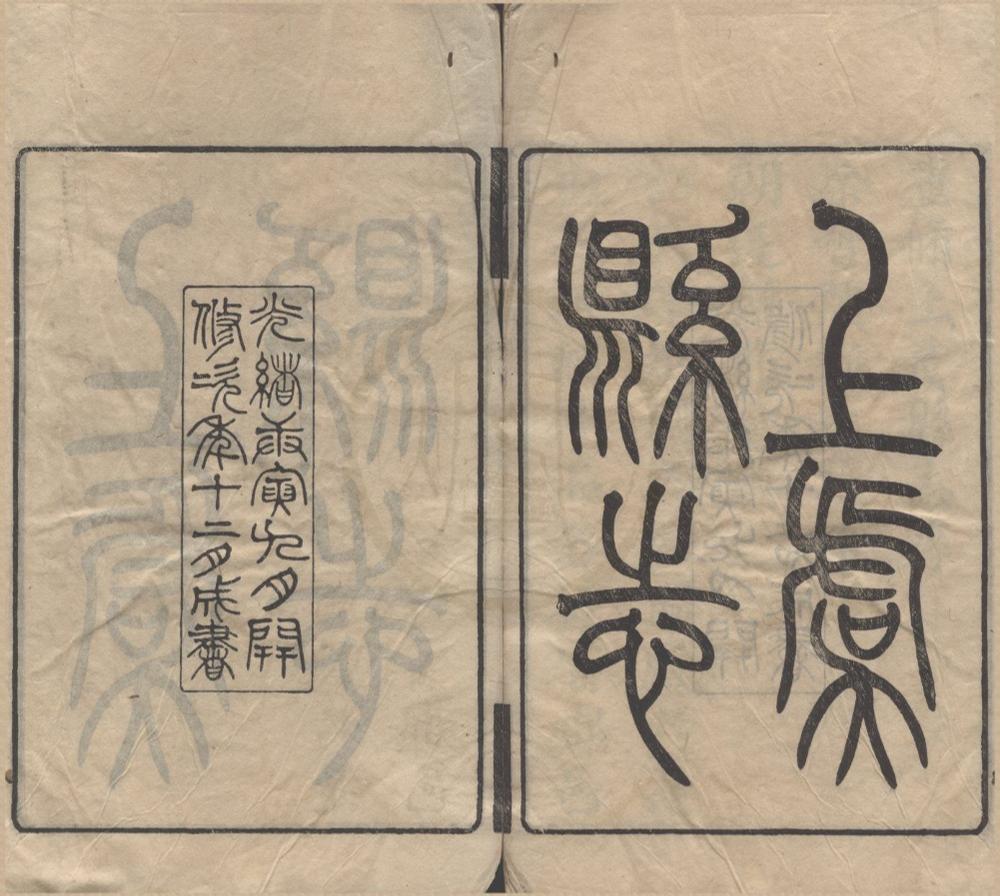 上虞
縣志
光緒庚寅九月開
修次年十二月成書